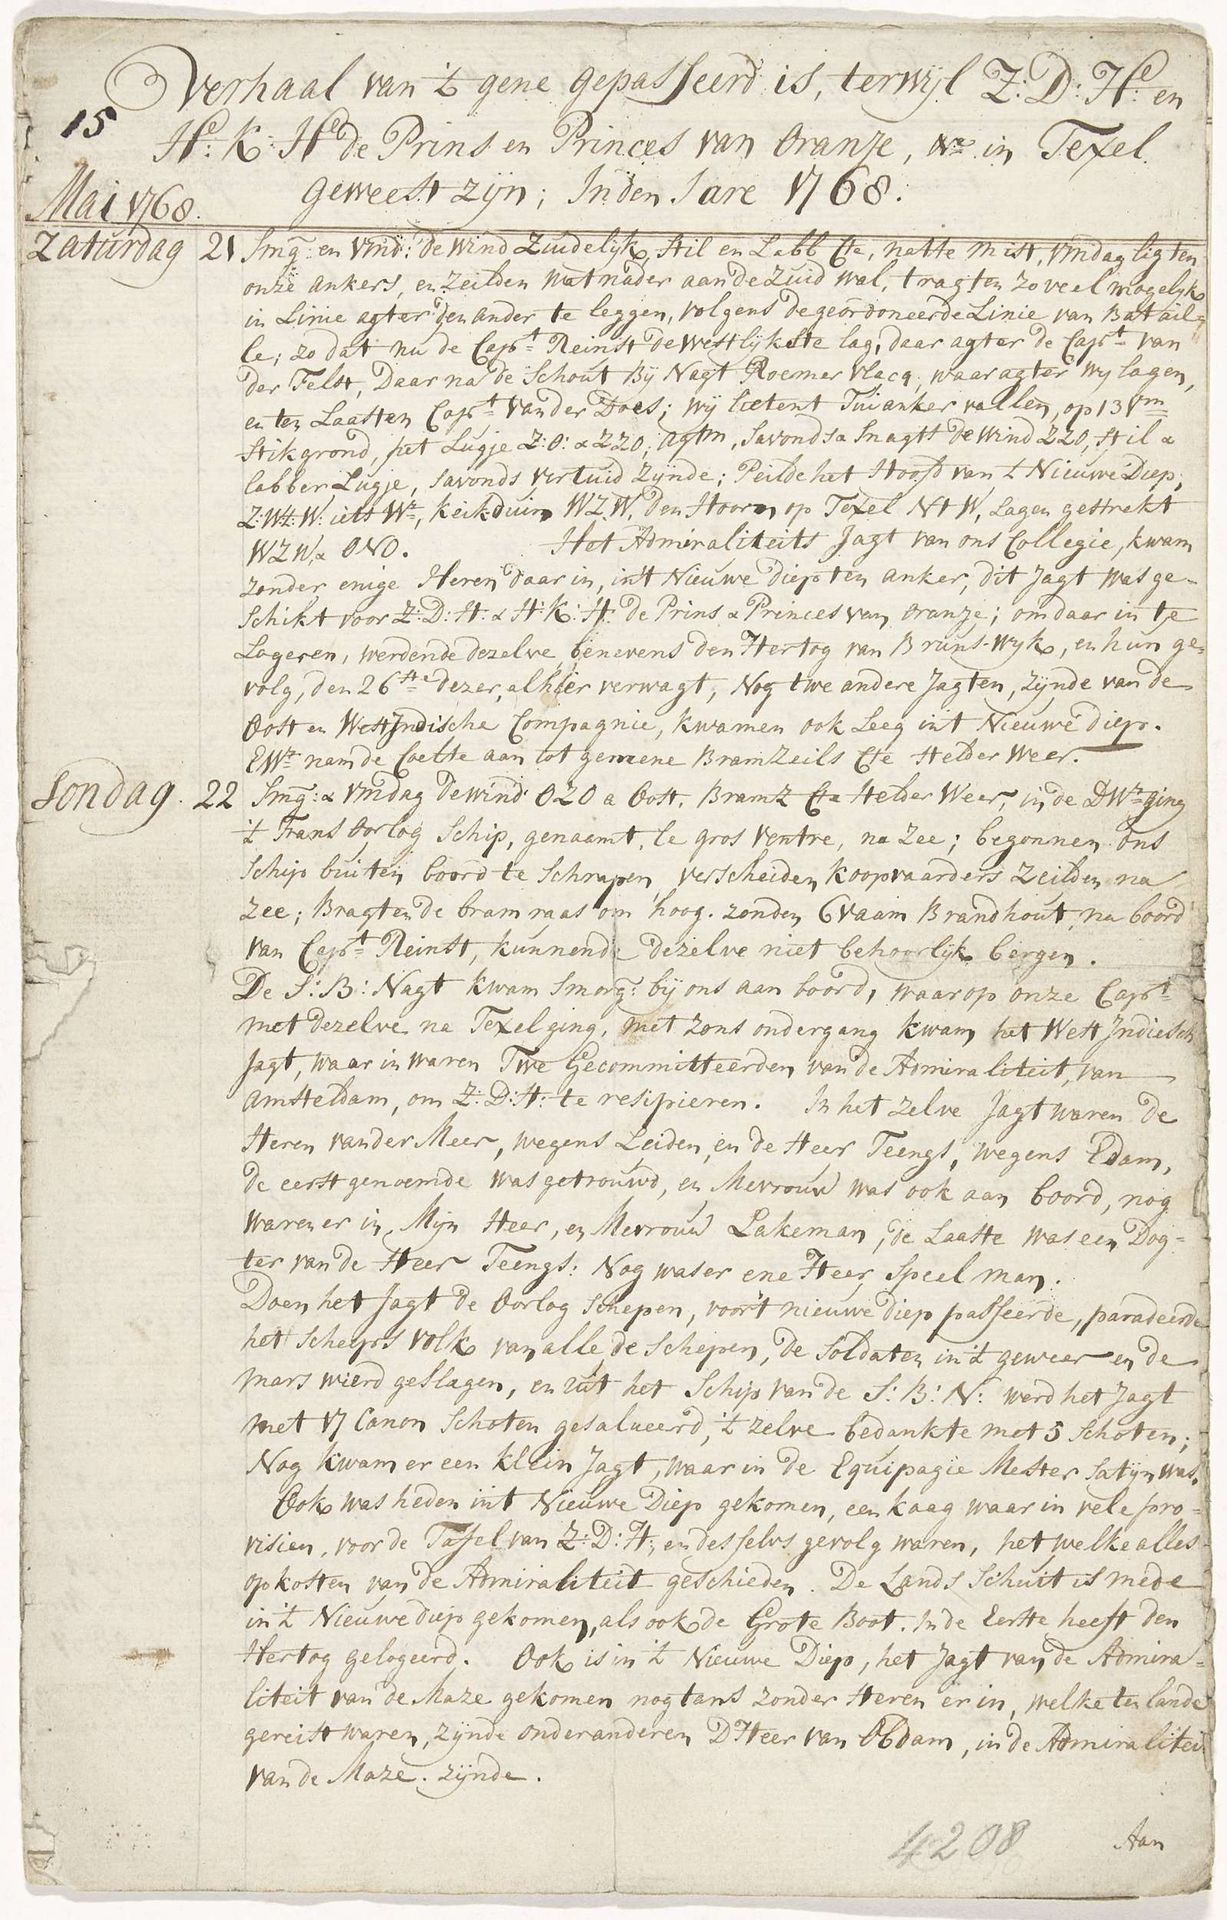 Verhaal van 't gene gepasseerd is, terwijl Z: D: He: en
15
He: K: He de Prins en Princes van Oranje, &c in Texel
geweest zijn; In den Jare 1768.
Mai 1768.
Zaturdag 21 Smg: en Vmd: de wind Zuidelijk, stil en Labb &c, natte mist, vmdag ligten
onze ankers, en zeilden wat nader aan de Zuid wal, tragten zo veel mogelijk
in Linie agter den ander te leggen, volgens de geordoneerde Linie van Batail-
le; zo dat nu de Capt Reinst de westlijkste lag, daar agter de Capt van
der Felst, Daar na de Schout Bij Nagt Roemer Vlacq, waar agter wy lagen,
en ten Laasten Capt van der Does; wy lieten t Tuianker vallen, op 13 vm
stikgrond, het Lugje Z:O: & ZZO; agtm, Savonds & Snagts De wind ZZO, stil &
labber Lugje, savonds vertuid zijnde; Peilde het Hoofd van 't Nieuwe Diep,
Z:Wt:W: iets Wr, Keikduin WZW, Den Hoorn op Texel NtW, Lagen gestrekt
WZW & ONO. Het Admiraliteits Jagt van ons Collegie, kwam
zonder enige Heren daar in, in 't Nieuwe diep ten anker, dit Jagt was ge-
schikt voor Z: D: H: & H: K: H: de Prins & Princes van Oranje; om daar in te
Logeren, werdende dezelve, benevens den Hertog van Bruns-wyk, en hun ge-
volg, den 26ste dezer, alhier verwagt, Nog twe andere Jagten, zijnde van de
Oost en WestIndische Compagnie, kwamen ook Leeg in't Nieuwe diep.
EWt nam de Coelte aan tot gemene BramZeils &c Helder Weer.
Sondag 22 Smg: & Vmdag De wind OZO a Oost, BramZ &c Helder Weer, in de DWt ging
't Trans Oorlog Schip, genaamt, le gros ventre, na zee; begonnen ons
Schip buiten boord te Schrapen, verscheiden koopvaarders zeilden na
zee; Bragten de bram raas om hoog. zonden 6 vaam Brandhout, na boord
van Capt Reinst, kunnende dezelve niet behoorlijk bergen.
De S: B: Nagt kwam Smorg: bij ons aan boord, waar op onze Capt
met dezelve na Texel ging, met zons ondergang kwam het West Indiesch
Jagt, waar in waren Twe Gecommitteerden van de Admiraliteit, van
Amsteldam, om Z: D: H: te resipieren. In het zelve Jagt waren de
Heren van der Meer, wegens Leiden, en de Heer Teengs, wegens Edam,
de eerst genoemde was getrouwd, en Mevrouw was ook aan boord, nog
waren er in, Mijn Heer, en Mevrouw Lakeman, de Laaste was een Dog-
ter van de Heer Teengs: Nog was er ene Heer, Speelman.
Doen het Jagt de Oorlog schepen, voor't nieuwe diep passeerde, paradeerde
het scheeps volk van alle de schepen, de soldaten in 't geweer en de
mars wierd geslagen, en uit het Schip van de S: B: N: werd het Jagt
met 17 Canon Schoten gesalueerd, 't zelve bedankte met 5 schoten;
Nog kwam er een klein Jagt, waar in de Equipagie Mester Satijn was.
Ook was heden in't Nieuwe Diep gekomen, een kaag waar in vele pro-
visien, voor de Tafel van Z: D: H:, en desselvs gevolg waren, het welke alles
op kosten van de Admiraliteit geschieden. De Lands Schuit is mede
in 't Nieuwe diep gekomen, als ook de Grote Boot. In de Eerste heeft den
Hertog gelogeerd. Ook is in 't Nieuwe Diep, het Jagt van de Admira-
liteit van de Maze gekomen nogtans zonder Heren er in, welke te lande
gereist waren, zijnde onder anderen D'Heer van Obdam, in de Admiraliteit
van de Maze. zijnde.
4208
Aan